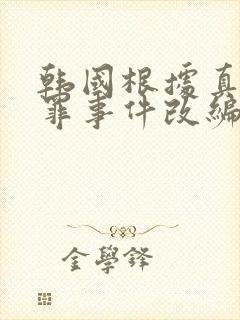 韩國根據真
罪事件改編
金學鋒